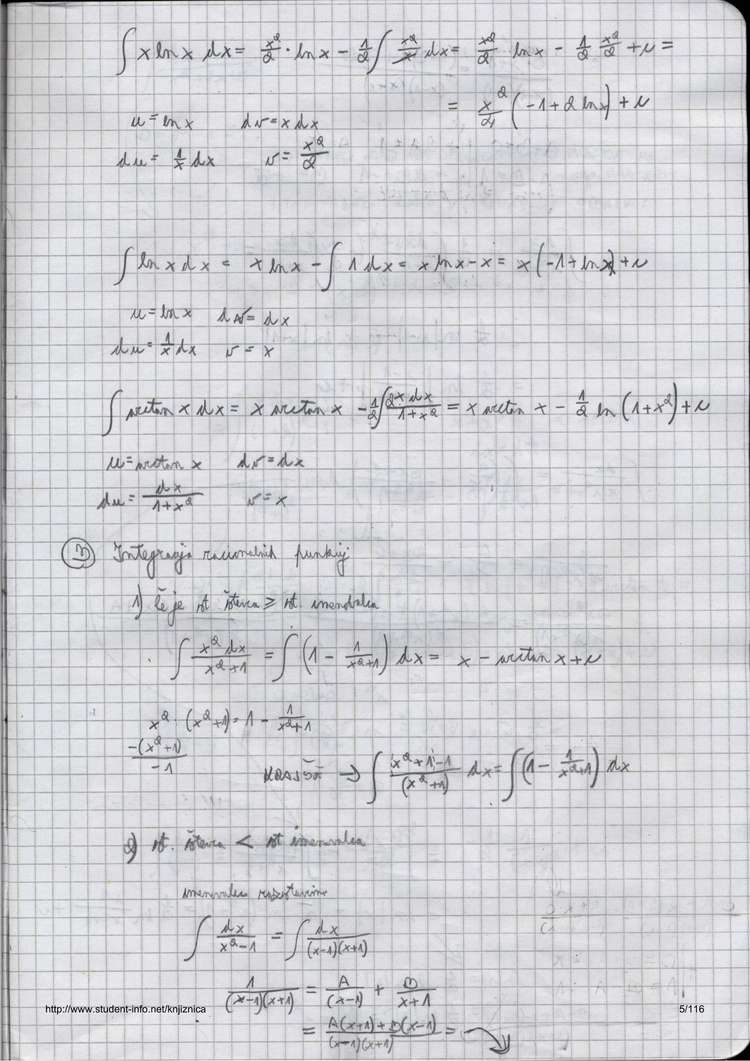 ∫ x ln x dx = x²/2 · ln x - 1/2 ∫ x²/x dx = x²/2 ln x - 1/2 x²/2 + c =
= x²/4 (-1 + 2 ln x) + c
u = ln x dv = x dx
du = 1/x dx v = x²/2
∫ ln x dx = x ln x - ∫ 1 dx = x ln x - x = x(-1 + ln x) + c
u = ln x dv = dx
du = 1/x dx v = x
∫ arctan x dx = x arctan x - 1/2 ∫ 2x dx/(1+x²) = x arctan x - 1/2 ln(1+x²) + c
u = arctan x dv = dx
du = dx/(1+x²) v = x
3 Integracija racionalnih funkcij
1) če je st. števca ≥ st. imenovalca
∫ x² dx/(x²+1) = ∫ (1 - 1/(x²+1)) dx = x - arctan x + c
x² : (x²+1) = 1 - 1/(x²+1)
-(x²+1)
-1
KRAJŠE → ∫ (x²+1)-1/(x²+1) dx = ∫ (1 - 1/(x²+1)) dx
2) st. števca < st imenovalca
imenovalec razstavimo
∫ dx/(x²-1) = ∫ dx/((x-1)(x+1))
1/((x-1)(x+1)) = A/(x-1) + B/(x+1)
= A(x+1)+B(x-1)/((x-1)(x+1)) =
http://www.student-info.net/knjiznica 5/116